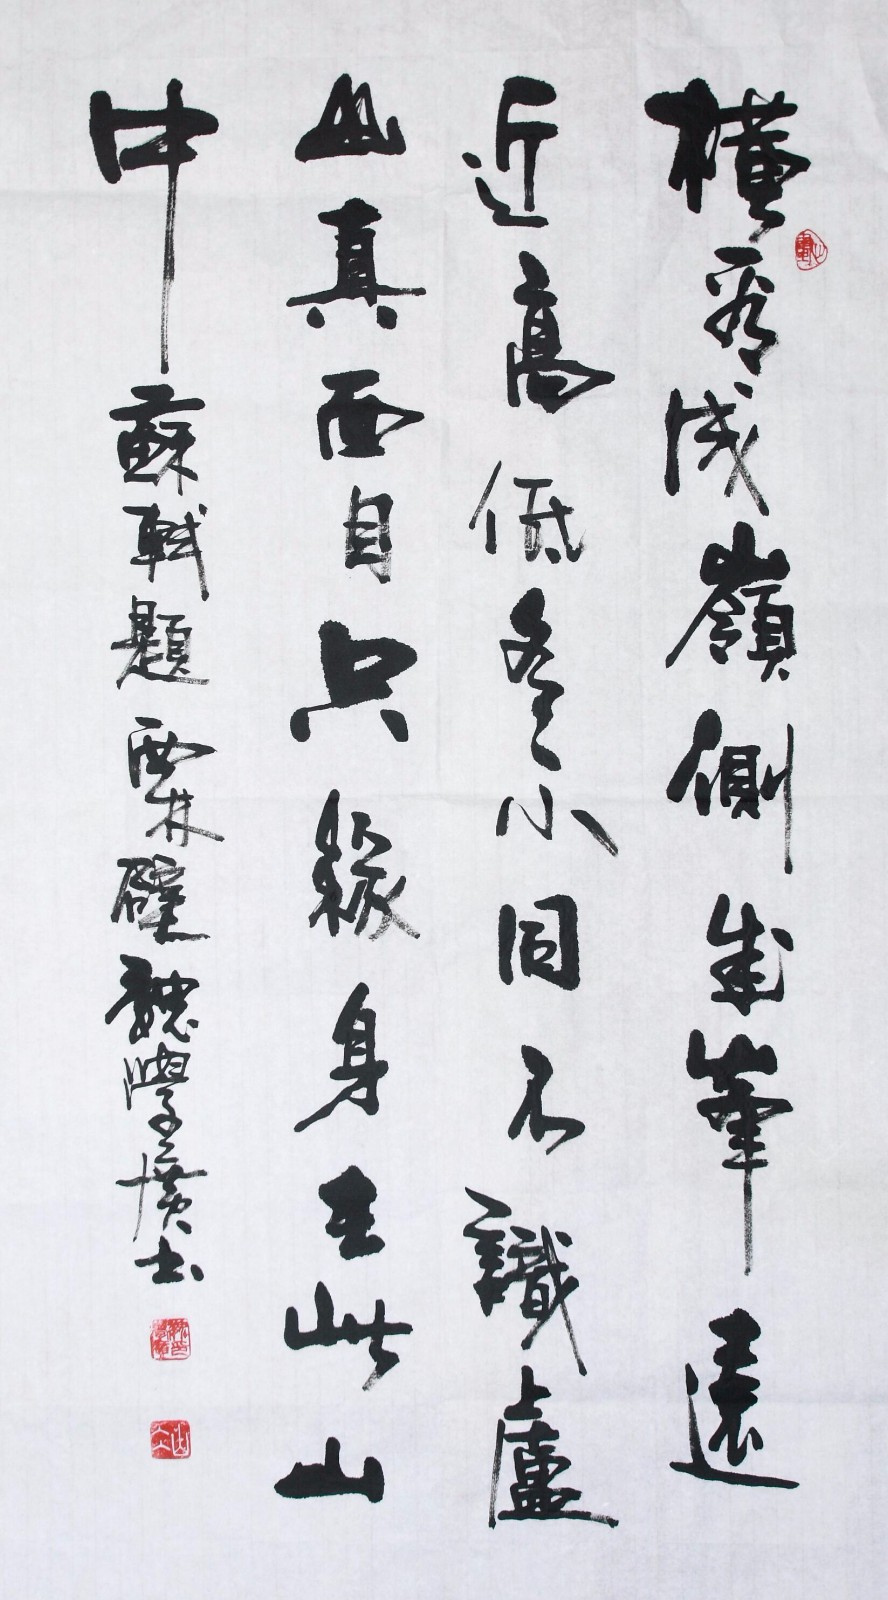 橫看成嶺側成峯遠
近高低各不同不識廬
山真面目只緣身在此山
中 蘇軾題西林壁 魏學書